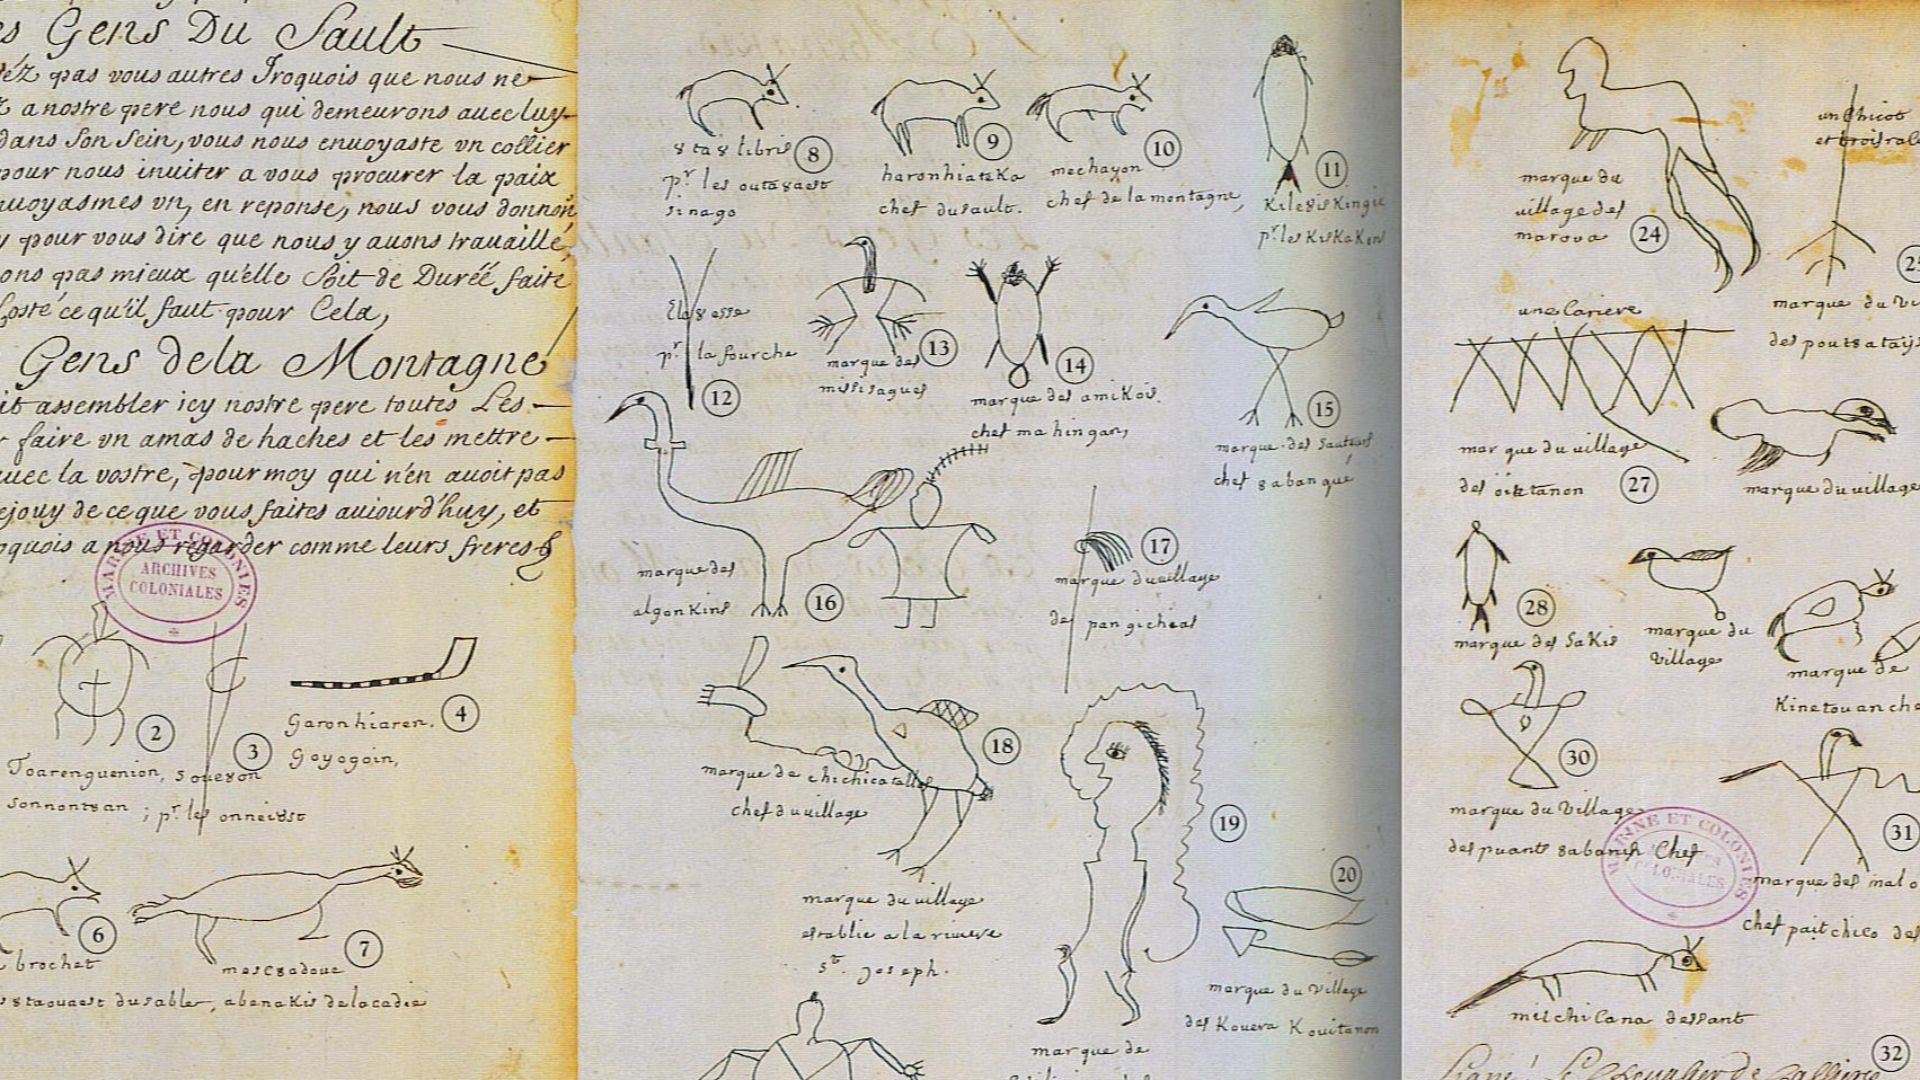 Gens Du Sault
pas vous autres Iroquois que nous ne
a nostre pere nous qui demeurons avec luy
dans son sein, vous nous envoyaste vn collier
pour nous inuiter a vous procurer la paix
vn, en reponse, nous vous donnon
pour vous dire que nous y auons trauaillé,
pas mieux qu'elle soit de Duréé faite
costé ce qu'il faut pour Cela,
Gens dela Montagne
assembler icy nostre pere toutes Les
faire vn amas de haches et les mettre
auec la vostre, pour moy qui n'en auoit pas
de ce que vous faites auiourd'huy, et
a nous regarder comme leurs freres
MARINE ET COLONIES
ARCHIVES
COLONIALES
2
3
4
Toarenguenion,
sonnontȣan
; pr. les onneiȣst
Garonhiaren.
Goyogoin,
6
7
brochet
mescȣadoue
dusable, abenakis delacadie
8
pr les outaȣaest
sinago
9
haronhiateka
chef dusault.
10
mechayon
chef de la montagne,
11
Kileȣiskingie
pr. les KisKaKons
12
pr. la fourche
13
marque des
missisagues
14
marque des amikois.
chef mahingan,
15
marque des sauteurs
chef ȣabangué
16
marque des
algonkins
17
marque du village
de pangicheas
18
marque de chichicatalle
chef du village
marque du village
establie a la riuiere
st. Joseph.
19
marque de
20
marque du village
des Kouera Kouitanon
24
marque du
village des
marova
un Chicot
marque du
des poutȣatay
une Cariere
27
marque du village
des
marque du village
28
marque des sakis
marque du
village
marque de
Kinetouan
30
marque du village
des puants ȣabanch Chef
MARINE ET COLONIES
31
marque des
chef paitchico des
mitchicana
32
Signé Le Cheualier de Callieres